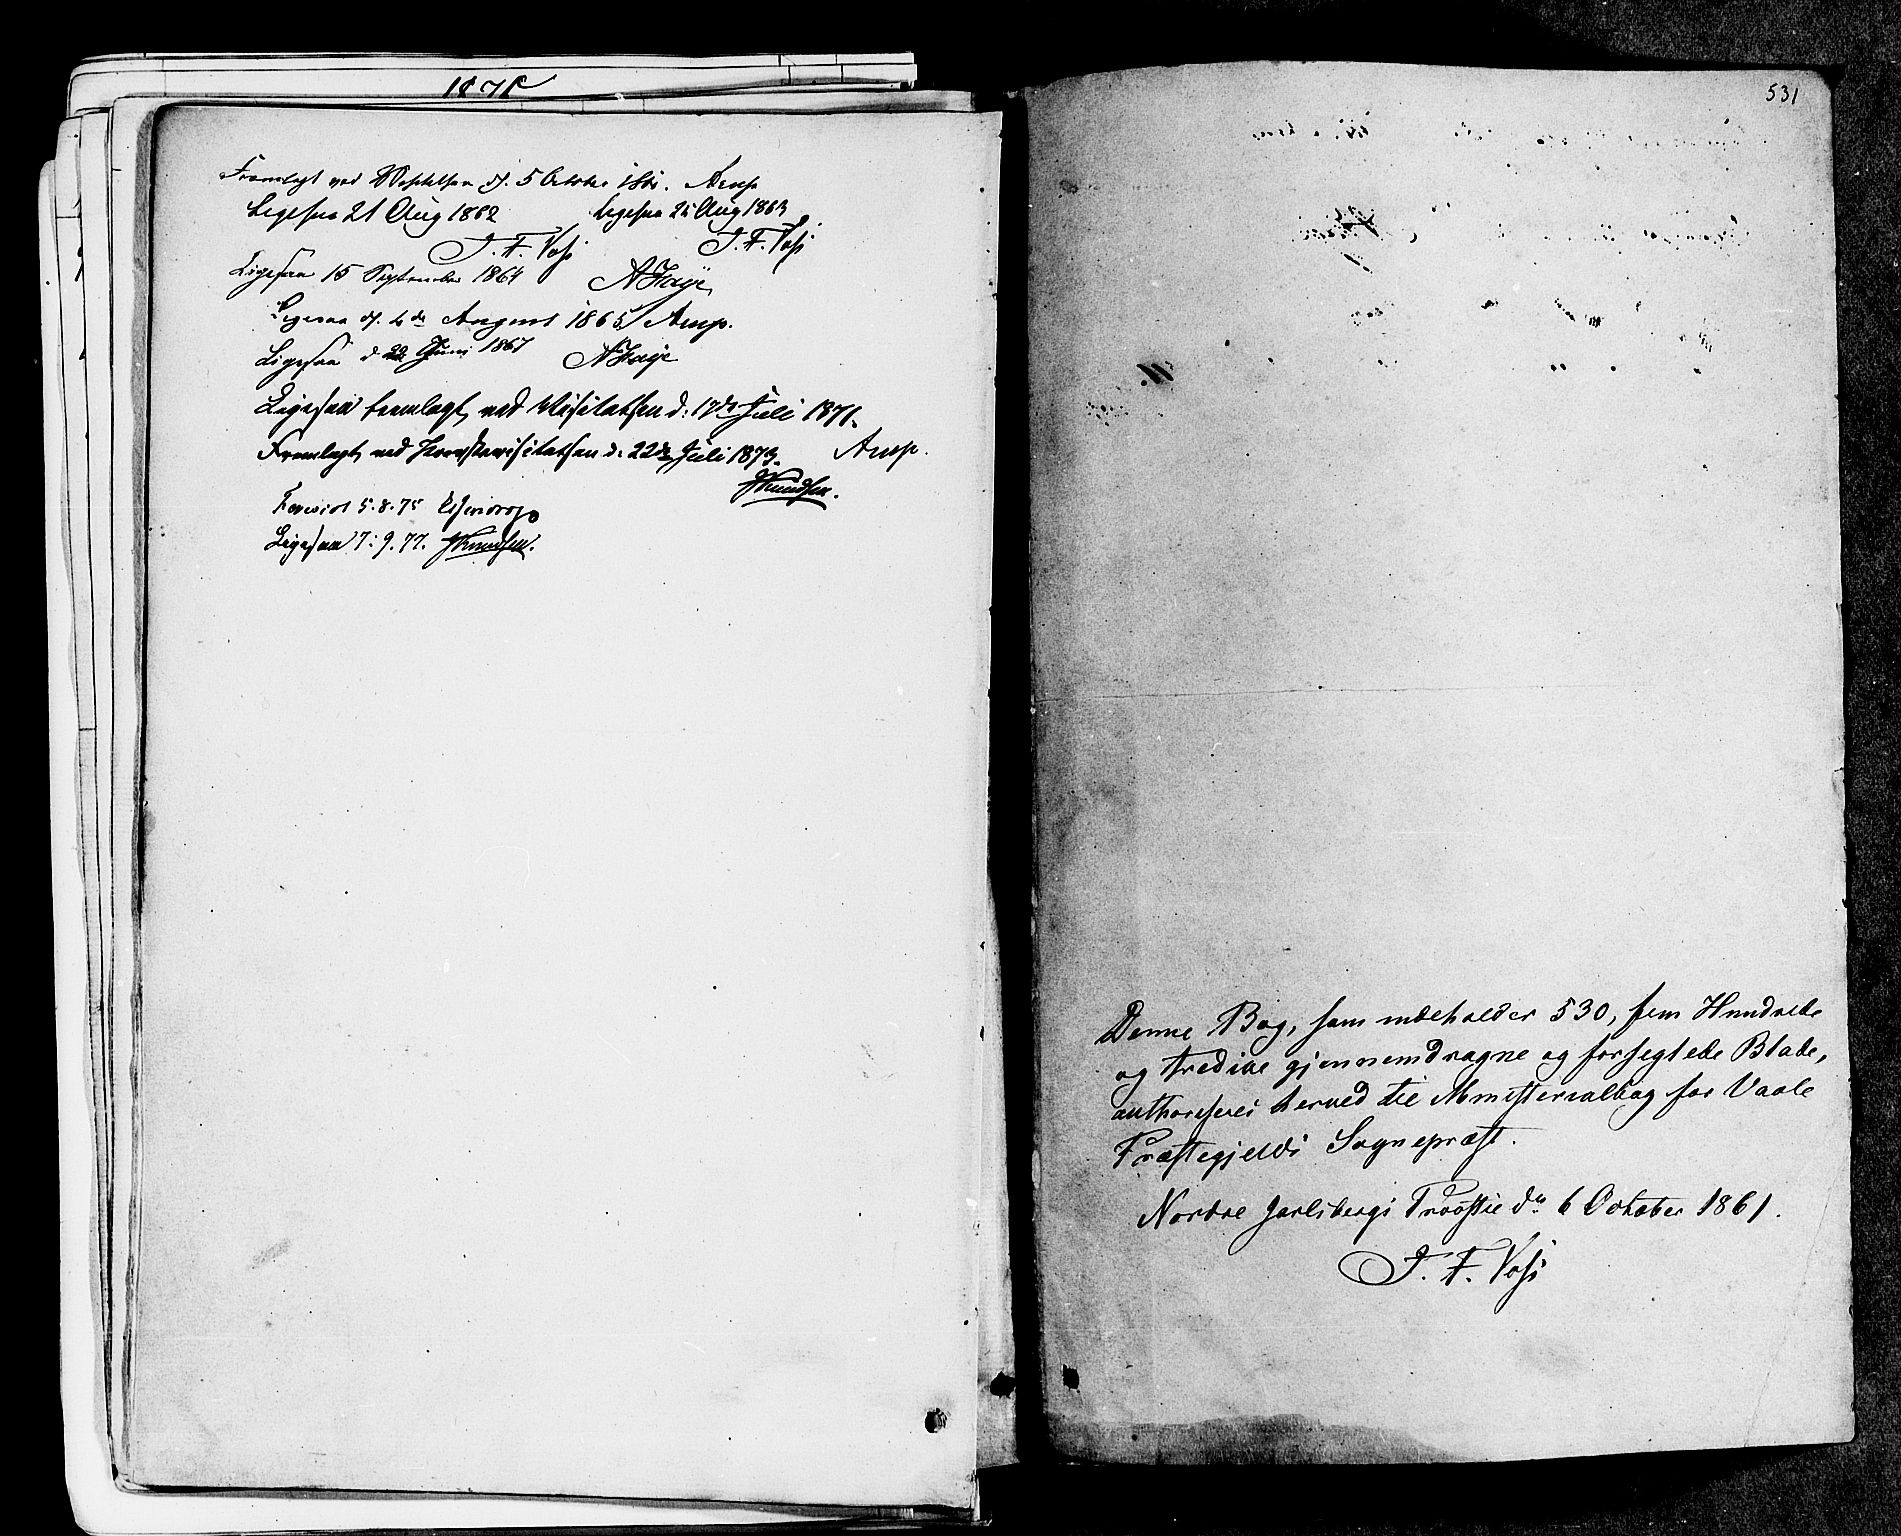 1878
Fremlagt ved d. 5 October 1861. Arup
Ligesaa 21 Aug 1862 Ligesaa 25 Aug 1863
J. F. Voss J. F. Voss
Ligesaa 15 September 1864 A Faye
Ligesaa d. de August 1865 Arup.
Ligesaa d 22 Juni 1867 A Faye
Ligesaa fremlagt ved Visitatsen d: 17de Juli 1871.
Arup.
Fremlagt ved Provstevisitatsen d: 22de Juli 1873.
JKnudsen.
Forevist 5.8.75
Ligesaa 7:9.77. JKnudsen.
531
Denne Bog, som indeholder 530, fem Hundrede
og tredive gjennemdragne og forseglede Blade,
authoriseres herved til Ministerialbog for Vaale
Præstegjelds Sognepræst.
Nordre Jarlsbergs Provstie dn 6 October 1861.
J. F. Voss